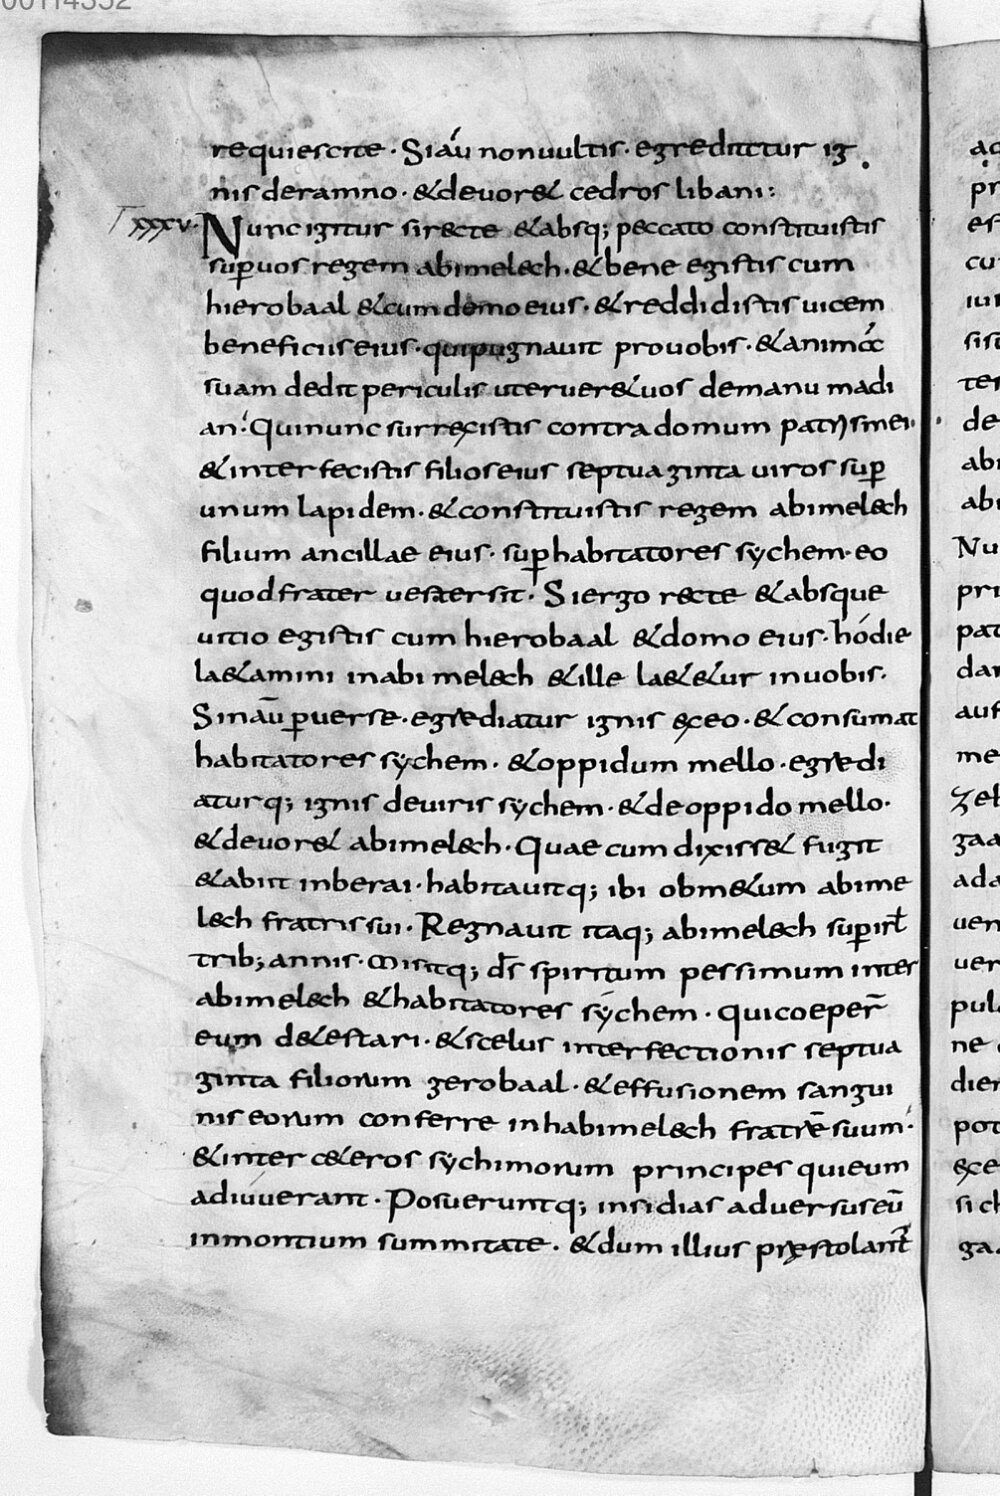 00114352
requiescite · Siaū nonuultis · egrediatur ig
nis deramno · &deuor& cedros libani:
XXXV · Nunc igitur sirecte &absq; peccato constituistis
sup̱uos regem abimelech · &bene egistis cum
hierobaal &cum domo eius · &reddidistis uicem
beneficiis eius · quipugnauit prouobis · &animā
suam dedit periculis uteruer&uos demanu madi
an: Quinunc surrexistis contra domum patris mei ·
&interfecistis filios eius septuaginta uiros sup̱
unum lapidem · &constituistis regem abimelech
filium ancillae eius · sup̱ habitatores sychem · eo
quod frater uester sit · Siergo recte &absque
uitio egistis cum hierobaal &domo eius · hódie
la&amini inabimelech &ille la&&ur inuobis ·
Sinaū p̱uerse · egrediatur ignis exeo · &consumat
habitatores sychem · &oppidum mello · egredi
aturq; ignis deuiris sychem · &deoppido mello ·
&deuor& abimelech · Quae cum dixiss& fugit
&abiit inberai · habitauitq; ibi obm&um abime
lech fratris sui · Regnauit itaq; abimelech sup̱irl̄
trib; annis · Misitq; d̄s spiritum pessimum inter
abimelech &habitatores sychem · quicoeper̄
eum d&estari · &scelus interfectionis septua
ginta filiorum gerobaal · &effusionem sangui
nis eorum conferre inhabimelech fratrē suum ·
&inter c&eros sychimorum principes quieum
adiuuerant · Posueruntq; insidias aduersus eū
inmontium summitate · &dum illius pręstolant̄